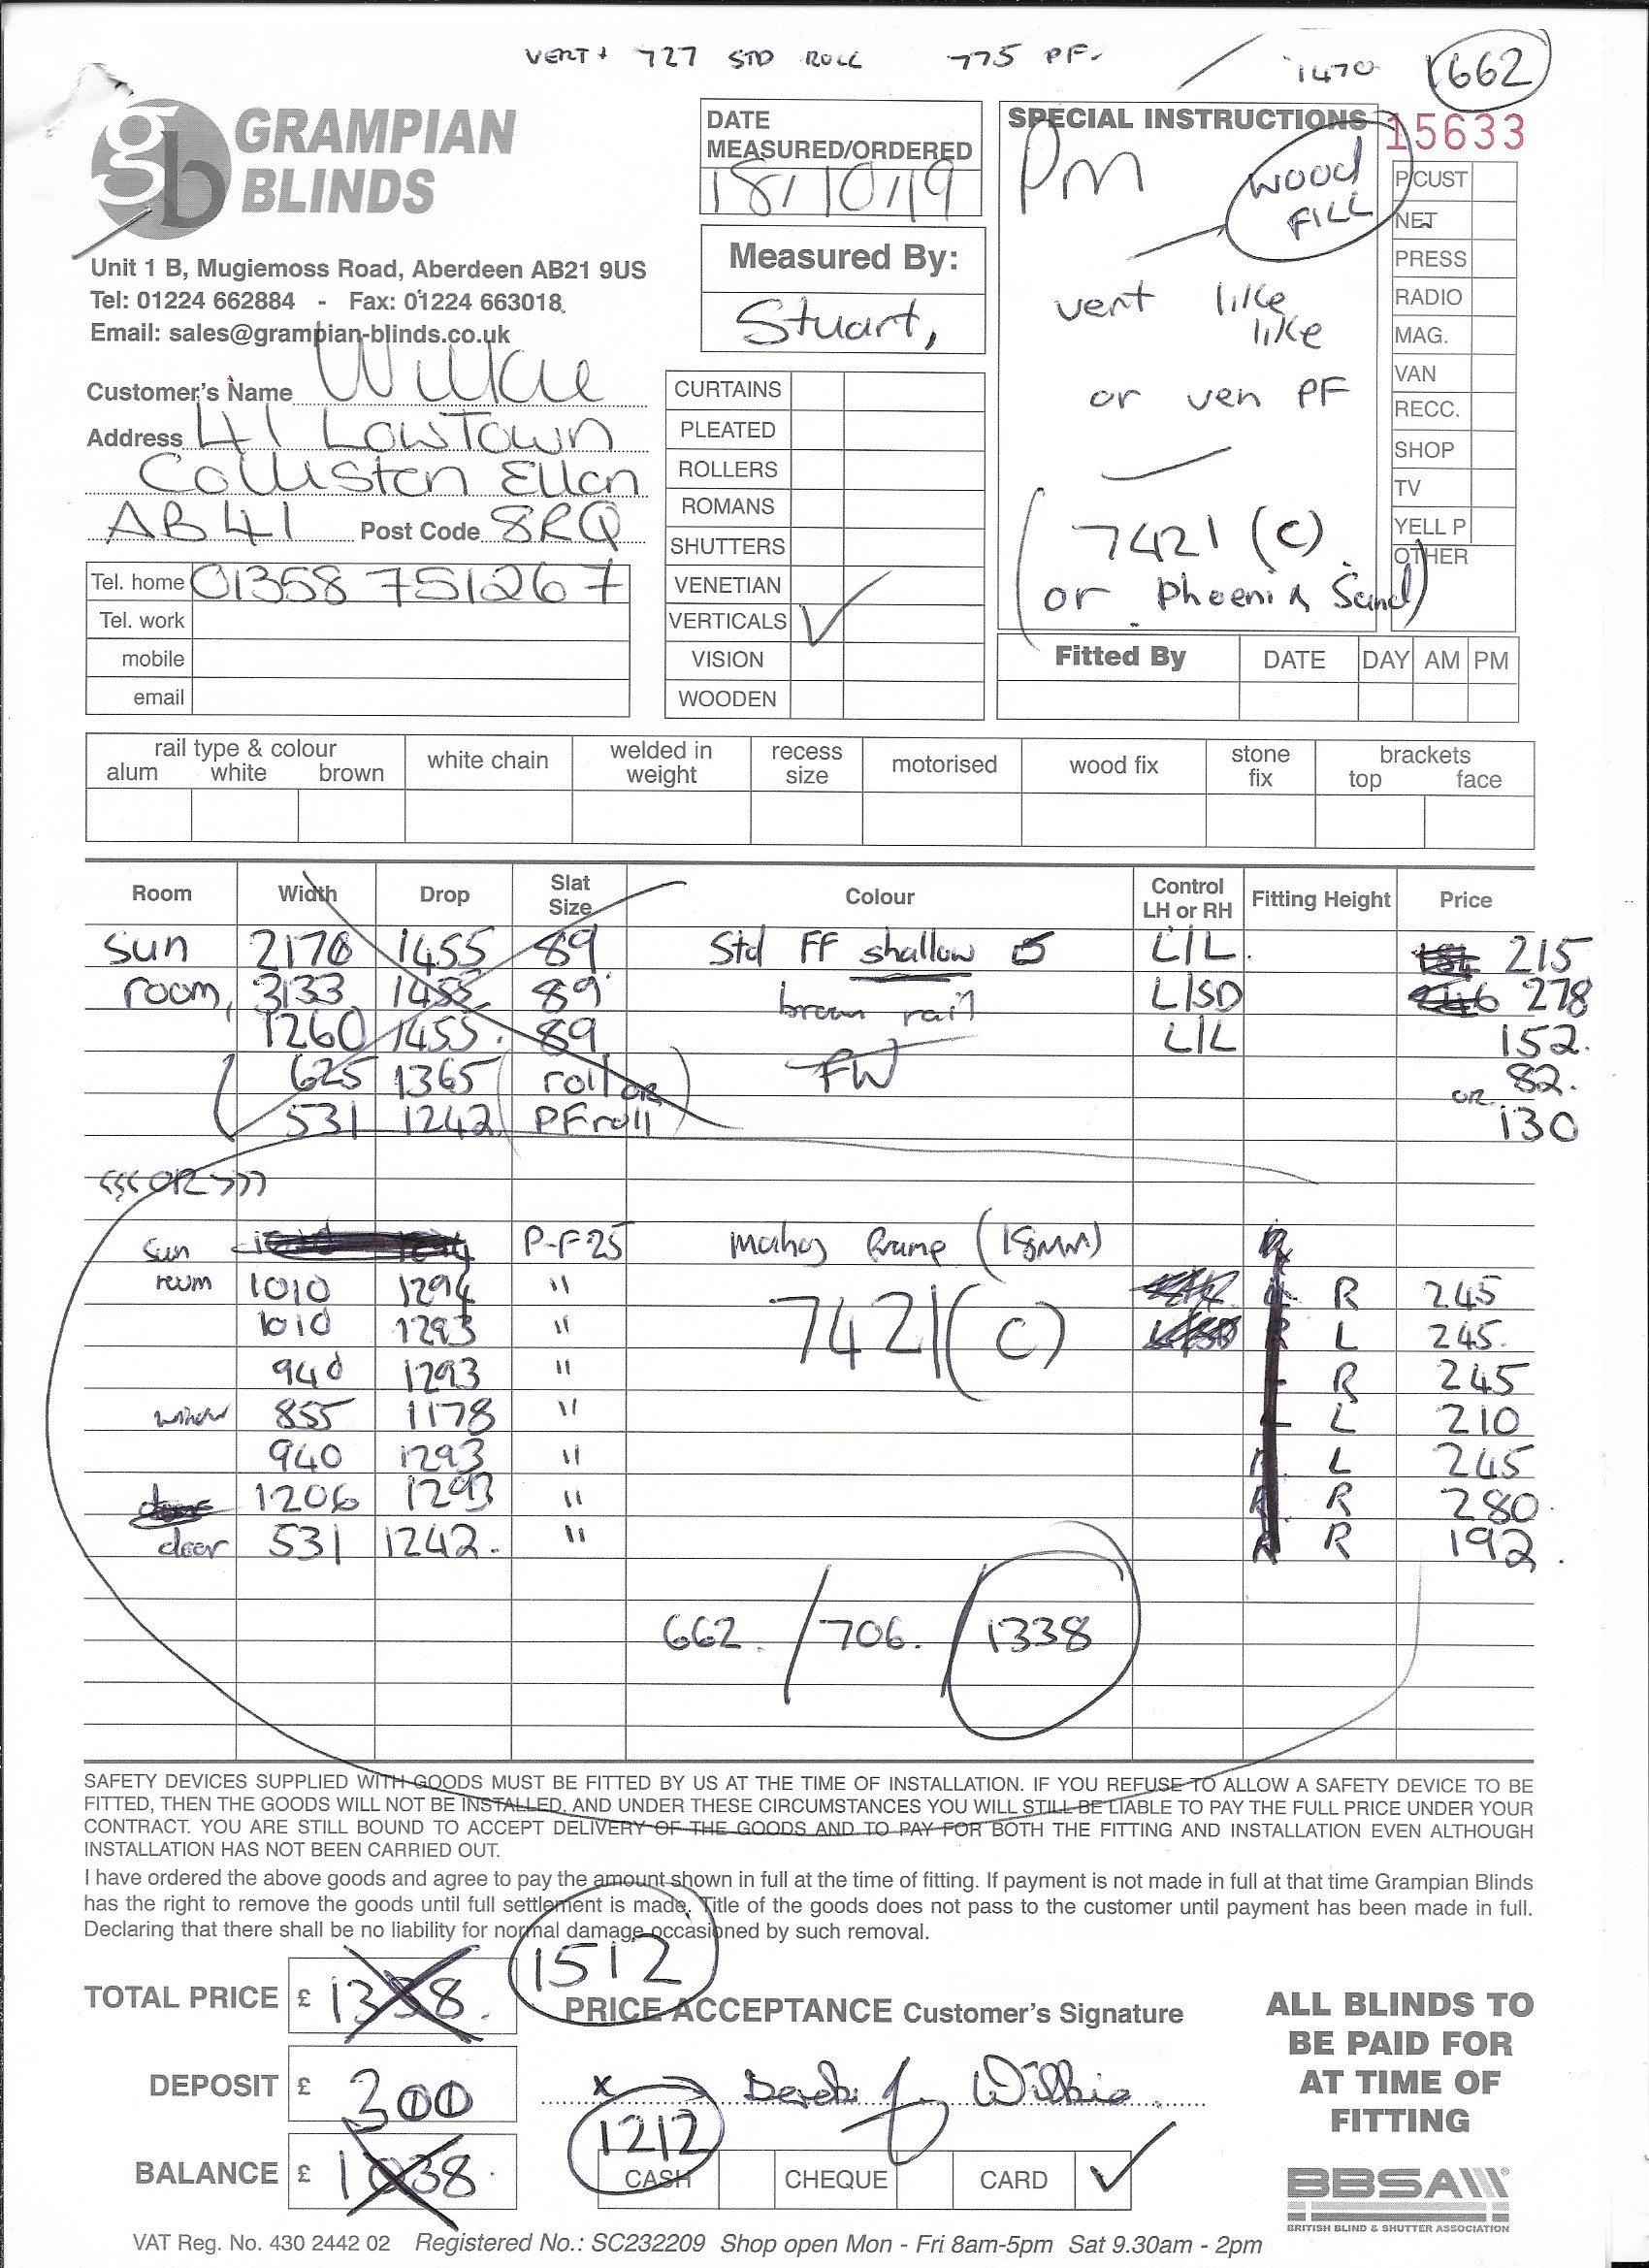 VERT + 727 STD ROLL 775 PF. 1470 1662
GRAMPIAN
BLINDS
Unit 1 B, Mugiemoss Road, Aberdeen AB21 9US
Tel: 01224 662884 - Fax: 01224 663018
Email: sales@grampian-blinds.co.uk
Customer's Name Wilkie
Address 41 LowTown
Colliston Ellon
AB41 Post Code 8RQ
Tel. home 01358 751267
Tel. work
mobile
email
DATE
MEASURED/ORDERED
18/10/19
Measured By:
Stuart,
CURTAINS
PLEATED
ROLLERS
ROMANS
SHUTTERS
VENETIAN
VERTICALS ✓
VISION
WOODEN
SPECIAL INSTRUCTIONS
Pm
wood
FILL
vert like
like
or ven PF
7421 (C)
(or Phoenix Sand)
15633
P CUST
NET
PRESS
RADIO
MAG.
VAN
RECC.
SHOP
TV
YELL P
OTHER
Fitted By DATE DAY AM PM
rail type & colour
alum white brown
white chain
welded in
weight
recess
size
motorised
wood fix
stone
fix
brackets
top face
Room Width Drop Slat Size Colour Control LH or RH Fitting Height Price
Sun 2170 1455 89 Std FF shallow L/L. 215
room, 3133 1455 89 brown rail L/SD 278
1260 1455. 89 FW L/L 152.
625 1365 (roll or 82.
531 1242 PF roll) or 130
<<< OR >>>
Sun P-F25 Mahog Frame (18mm)
room 1010 1294 " 7421(C) R 245
1010 1293 " L 245.
940 1293 " R 245
window 855 1178 " L 210
940 1293 " L 245
1206 1293 " R 280
door 531 1242. " R 192.
662. / 706. / 1338
SAFETY DEVICES SUPPLIED WITH GOODS MUST BE FITTED BY US AT THE TIME OF INSTALLATION. IF YOU REFUSE TO ALLOW A SAFETY DEVICE TO BE
FITTED, THEN THE GOODS WILL NOT BE INSTALLED. AND UNDER THESE CIRCUMSTANCES YOU WILL STILL BE LIABLE TO PAY THE FULL PRICE UNDER YOUR
CONTRACT. YOU ARE STILL BOUND TO ACCEPT DELIVERY OF THE GOODS AND TO PAY FOR BOTH THE FITTING AND INSTALLATION EVEN ALTHOUGH
INSTALLATION HAS NOT BEEN CARRIED OUT.
I have ordered the above goods and agree to pay the amount shown in full at the time of fitting. If payment is not made in full at that time Grampian Blinds
has the right to remove the goods until full settlement is made. Title of the goods does not pass to the customer until payment has been made in full.
Declaring that there shall be no liability for normal damage occasioned by such removal.
TOTAL PRICE £ 1338. 1512
PRICE ACCEPTANCE Customer's Signature
DEPOSIT £ 300
x Derek J Wilkie
BALANCE £ 1038. 1212
CASH CHEQUE CARD ✓
ALL BLINDS TO
BE PAID FOR
AT TIME OF
FITTING
BBSA
BRITISH BLIND & SHUTTER ASSOCIATION
VAT Reg. No. 430 2442 02 Registered No.: SC232209 Shop open Mon - Fri 8am-5pm Sat 9.30am - 2pm